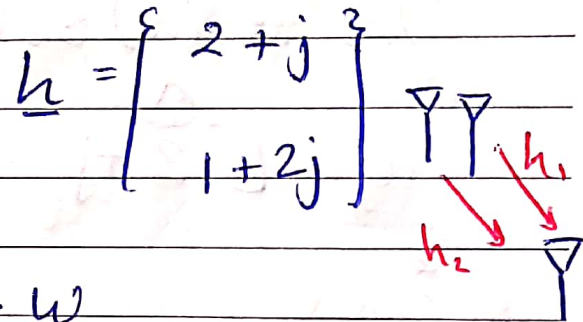 h = [ 2 + j
1 + 2j ]
h₁
h₂
. w